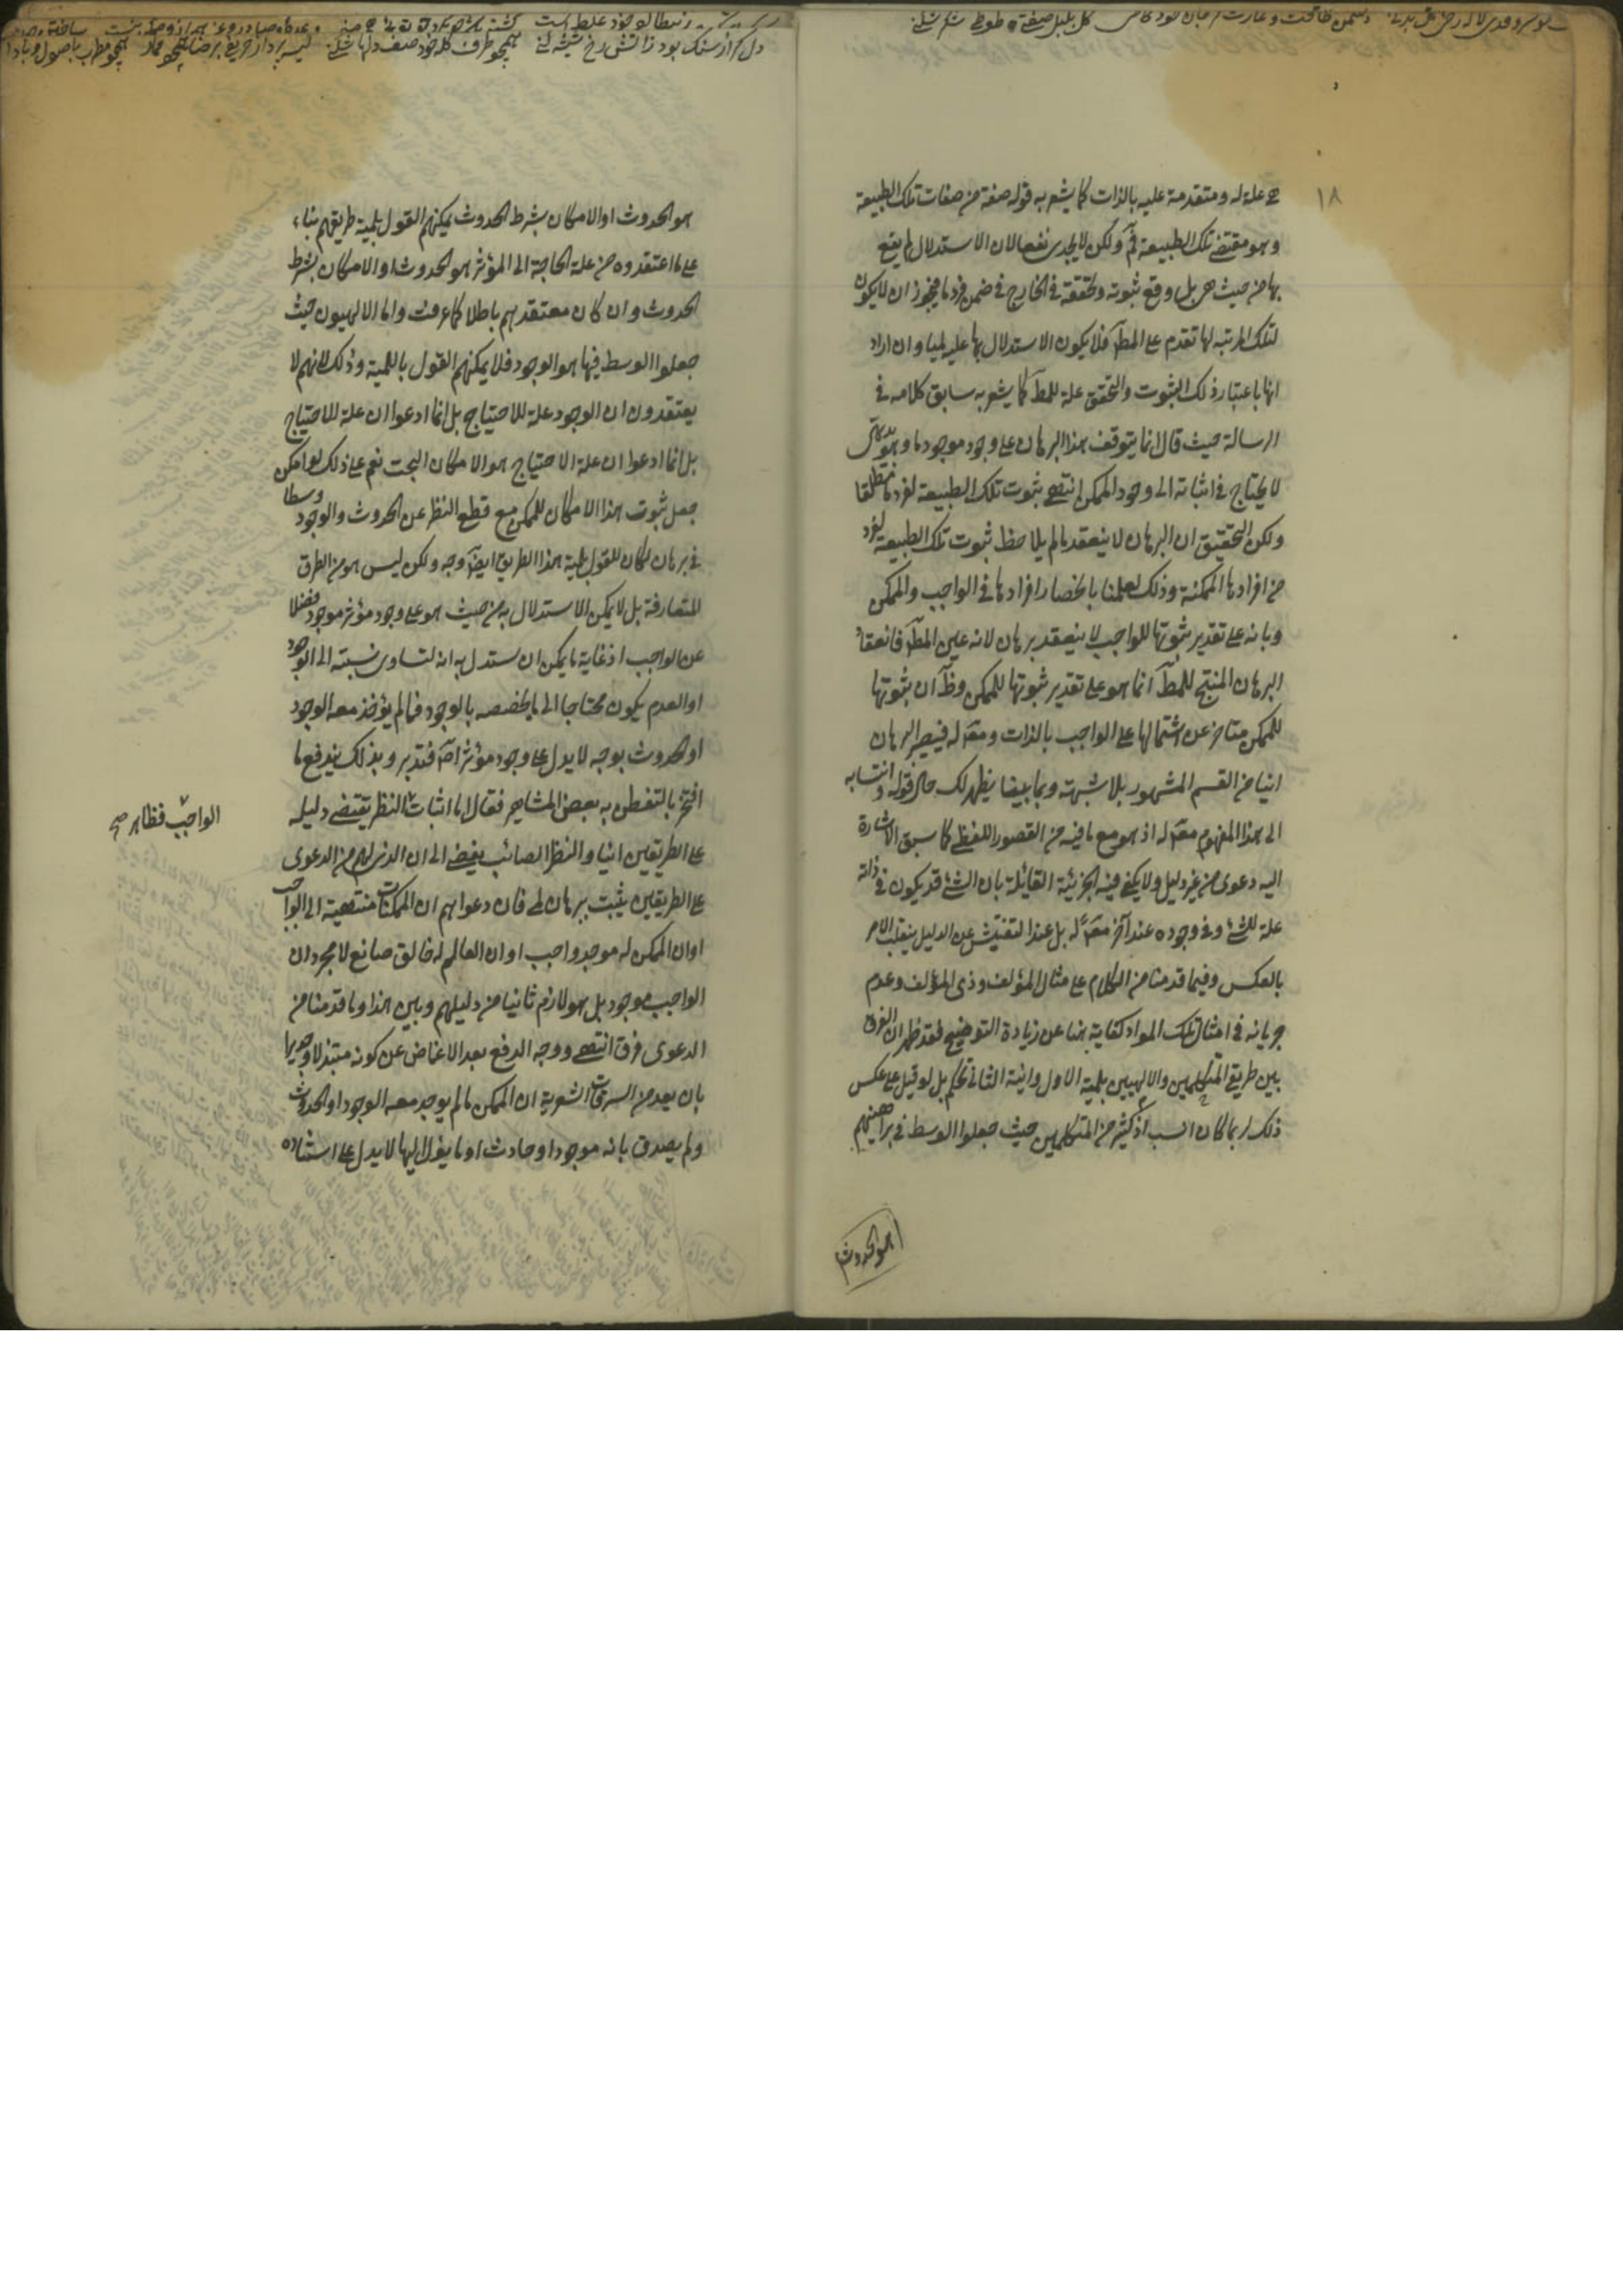 ١٨
هي علة له ومتقدمة عليه بالذات كما يشعر به قوله صفة من صفات تلك الطبيعة
وهو مقتضى تلك الطبيعة فم ولكن لا يجدى نفعا لان الاستدلال لم يقع
بها من حيث هى بل وقع ثبوته وتحققه فى الخارج فى ضمن فرد ما فيجوز ان لا يكون
لتلك المرتبه لها تقدم على المط فلا يكون الاستدلال بها عليه لميا وان اراد
انها باعتبار ذلك الثبوت والتحقق علة للمط كما يشعر به سابق كلامه فى
الرسالة حيث قال انما يتوقف هذا البرهان على وجود موجود ما وهو بديهى
لا يحتاج فى اثباته الى وجود الممكن انتهى بثبوت تلك الطبيعة لفرد ما مطلقا
ولكن التحقيق ان البرهان لا ينعقد ما لم يلاحظ ثبوت تلك الطبيعة لفرد
من افرادها الممكنة وذلك لعلمنا بانحصار افرادها فى الواجب والممكن
وبانه على تقدير ثبوتها للواجب لا ينعقد برهان لانه عين المط فانعقاد
البرهان المنتج للمط انما هو على تقدير ثبوتها للممكن وظ ان ثبوتها
للممكن متاخر عن اشتمالها على الواجب بالذات ومعلول له فيصير البرهان
انيا من القسم المشهور بلا شبهة وبما بيضا يظهر لك حال قوله وانتسابه
الى هذا المفهوم معلول له اذ هو مع ما فيه من القصور اللفظى كما سبق الاشارة
اليه دعوى من غير دليل ولا يكفى فيه الجزئية القائلة بان الشئ قد يكون فى ذاته
علة للشئ وفى وجوده عند آخر معلولا له بل عند التفتيش عن الدليل ينقلب الامر
بالعكس وفيما قدمنا من الكلام على مثال المؤلف وذى المؤلف وعدم
جريانه فى امثال تلك المواد كفاية هنا عن زيادة التوضيح فقد ظهر ان الفرق
بين طريقى المتكلمين والالهيين بلمية الاول وانية الثانى تحكم بل لو قيل على عكس
ذلك لربما كان انسب اذ كثير من المتكلمين حيث جعلوا الوسط فى براهينهم
هو الحدوث
هو الحدوث او الامكان بشرط الحدوث يمكنهم القول بلمية طريقهم بناء
على ما اعتقدوه من علة الحاجة الى المؤثر هو الحدوث او الامكان بشرط
الحدوث وان كان معتقدهم باطلا كما عرفت واما الالهيون حيث
جعلوا الوسط فيها هو الوجود فلا يمكنهم القول باللمية وذلك لانهم لا
يعتقدون ان الوجود علة للاحتياج بل انما ادعوا ان علة للاحتياج
بل انما ادعوا ان علة الاحتياج هو الامكان البحت نعم على ذلك لو امكن
جعل ثبوت هذا الامكان للممكن مع قطع النظر عن الحدوث والوجود وسطا
فى برهان لكان للقول بلمية هذا الطريق ايضا وجه ولكن ليس هو من الطرق
المتعارفة بل لا يمكن الاستدلال به من حيث هو على وجود مؤثر موجود فضلا
عن الواجب اذ غاية ما يمكن ان يستدل به انه لتساوى نسبته الى الوجود
او العدم يكون محتاجا الى ما يخصصه بالوجود فما لم يؤخذ معه الوجود
او الحدوث بوجه لا يدل على وجود مؤثر اصلا فتدبر وبذلك يندفع ما
افتخر بالتفطن به بعض المشاهير فقال اما اثبات النظر يقتضى دليله
الواجب فظاهر صح
على الطريقين انيا والنظر الصائب يفضى الى ان الذى لهم من الدعوى
على الطريقين يثبت ببرهان لمى فان دعواهم ان الممكنات منتهية الى الواجب
او ان الممكن له موجد واجب او ان العالم له خالق صانع لا مجرد ان
الواجب موجود بل هو لازم ثانيا من دليلهم وبين هذا وما قدمنا من
الدعوى فرق انتهى ووجه الدفع بعد الاغماض عن كونه مبتذلا وجديرا
بان يعد من السرقات الشعرية ان الممكن ما لم يوجد معه الوجود او الحدوث
ولم يصدق بانه موجود او حادث او ما يؤل اليها لا يدل على استناده